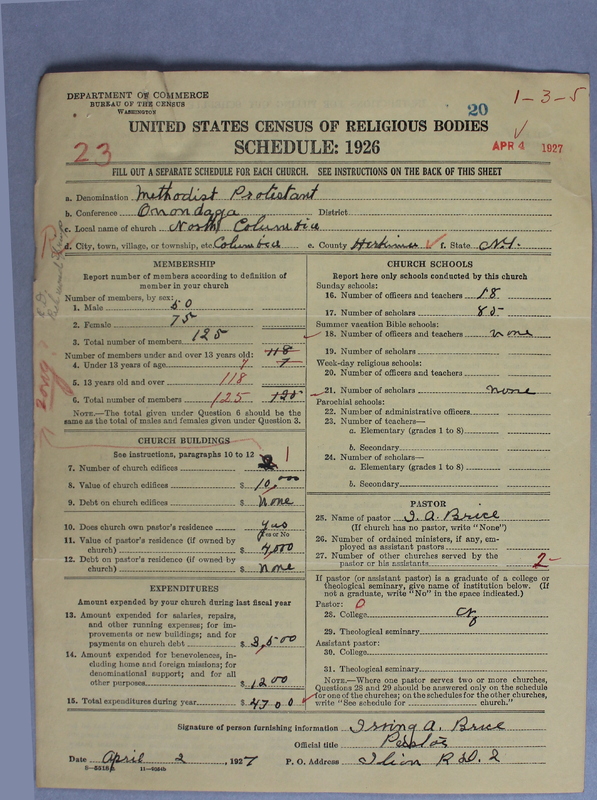 DEPARTMENT OF COMMERCE
BUREAU OF THE CENSUS
WASHINGTON
20
1-3-5
UNITED STATES CENSUS OF RELIGIOUS BODIES
SCHEDULE: 1926
23
APR 4 1927
FILL OUT A SEPARATE SCHEDULE FOR EACH CHURCH. SEE INSTRUCTIONS ON THE BACK OF THIS SHEET
a. Denomination Methodist Protestant
b. Conference Onondaga District
c. Local name of church North Columbia
d. City, town, village, or township, etc. Columbia e. County Herkimer f. State N.Y.
MEMBERSHIP
Report number of members according to definition of
member in your church
Number of members, by sex:
1. Male 50
2. Female 75
3. Total number of members 125
Number of members under and over 13 years old: 118
4. Under 13 years of age 7 7
5. 13 years old and over 118
6. Total number of members 125 125
NOTE.—The total given under Question 6 should be the
same as the total of males and females given under Question 3.
CHURCH BUILDINGS
See instructions, paragraphs 10 to 12
7. Number of church edifices 2 1
8. Value of church edifices $ 10,000
9. Debt on church edifices $ None
10. Does church own pastor's residence yes
Yes or No
11. Value of pastor's residence (if owned by
church) $ 4,000
12. Debt on pastor's residence (if owned by
church) $ None
EXPENDITURES
Amount expended by your church during last fiscal year
13. Amount expended for salaries, repairs,
and other running expenses; for im-
provements or new buildings; and for
payments on church debt $ 3,500
14. Amount expended for benevolences, in-
cluding home and foreign missions; for
denominational support; and for all
other purposes $ 1200
15. Total expenditures during year $ 4700
CHURCH SCHOOLS
Report here only schools conducted by this church
Sunday schools:
16. Number of officers and teachers 18
17. Number of scholars 85
Summer vacation Bible schools:
18. Number of officers and teachers none
19. Number of scholars
Week-day religious schools:
20. Number of officers and teachers
21. Number of scholars none
Parochial schools:
22. Number of administrative officers
23. Number of teachers—
a. Elementary (grades 1 to 8)
b. Secondary
24. Number of scholars—
a. Elementary (grades 1 to 8)
b. Secondary
PASTOR
25. Name of pastor I. A. Brice
(If church has no pastor, write "None")
26. Number of ordained ministers, if any, em-
ployed as assistant pastors
27. Number of other churches served by the
pastor or his assistants 2
If pastor (or assistant pastor) is a graduate of a college or
theological seminary, give name of institution below. (If
not a graduate, write "No" in the space indicated.)
Pastor: 0
28. College
29. Theological seminary
Assistant pastor:
30. College
31. Theological seminary
NOTE.—Where one pastor serves two or more churches,
Questions 28 and 29 should be answered only on the schedule
for one of the churches; on the schedules for the other churches,
write "See schedule for church."
Signature of person furnishing information Irving A. Brice
Official title Pastor
Date April 2, 1927 P. O. Address Ilion R.D. 2